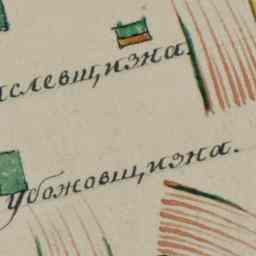 слевщизна.
убожовщизна.